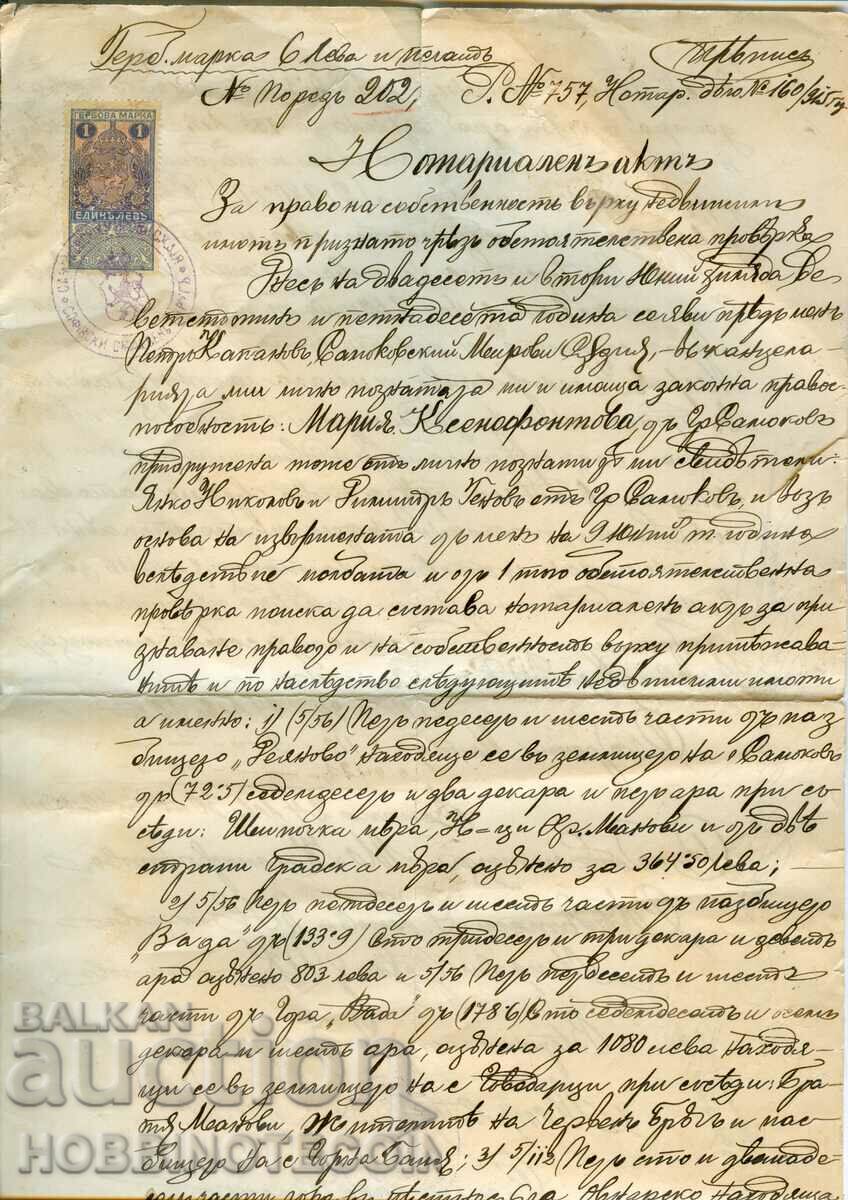 Герб. марка 6 лева и печатъ
Прѣпись
№ Порезъ 202, Р. № 757, Нотар. дѣло № 160/915 год
ГЕРБОВА МАРКА
1 1
ЕДИНЪ ЛЕВЪ
Нотариаленъ актъ
За право на собственность върху недвижими
имотъ признато чрѣзъ обстоятелствена провѣрка
Днесь на двадесеть и втори Юний хиляда, де
ветстотинъ и петнадесета година се яви прѣдъ менъ
Петро Капановъ, Самоковский Мирови Сѫдия, въ канцела-
рията ми лично познатата ми и имаща законна правос-
пособность: Мария Ксенофонтова, отъ гр. Самоковъ
придружена тоже отъ лично познати ми свидѣтели:
Янко Николовъ и Димитъръ Геновъ отъ гр. Самоковъ, и възъ
основа на извършената отъ менъ на 9 Юний т. година
вслѣдствие молбата и отъ 1 того обстоятелственна
провѣрка поиска да съставя нотариаленъ актъ за при
знаване правото и на собственность върху притѣжава-
нитѣ и по наслѣдство слѣдующитѣ недвижими имоти
а именно: 1) (5/56) Петь педесеть и шесть части отъ паз
бището „Реляново" находяще се въ землището на г. Самоковъ
отъ (72·5) седемдесеть и два декара и петь ара при съ-
сѣди: Шипочка мѣра, Н-ци Хр. Манови и отъ двѣ
страни Градска мѣра, оцѣнено за 364·50 лева;
2) 5/56 Петь петдесеть и шесть части отъ пазбището
„Вада" отъ (133·9) сто тридесеть и три декара и деветь
ара оцѣнено 803 лева и 5/56 Петь петдесеть и шесть
части отъ Гора „Вада" отъ (178·6) Сто седемдесеть и осемь
декара и шесть ара, оцѣнена за 1080 лева находя-
щи се въ землището на с. Говедарци при съсѣди: Бра-
тя Манови, на Червенъ Брѣгъ и пас-
бището на с. Горня Баня; 3) 5/112 Петь сто и дванаде-
BALKAN
auction
HOBBINOTECA